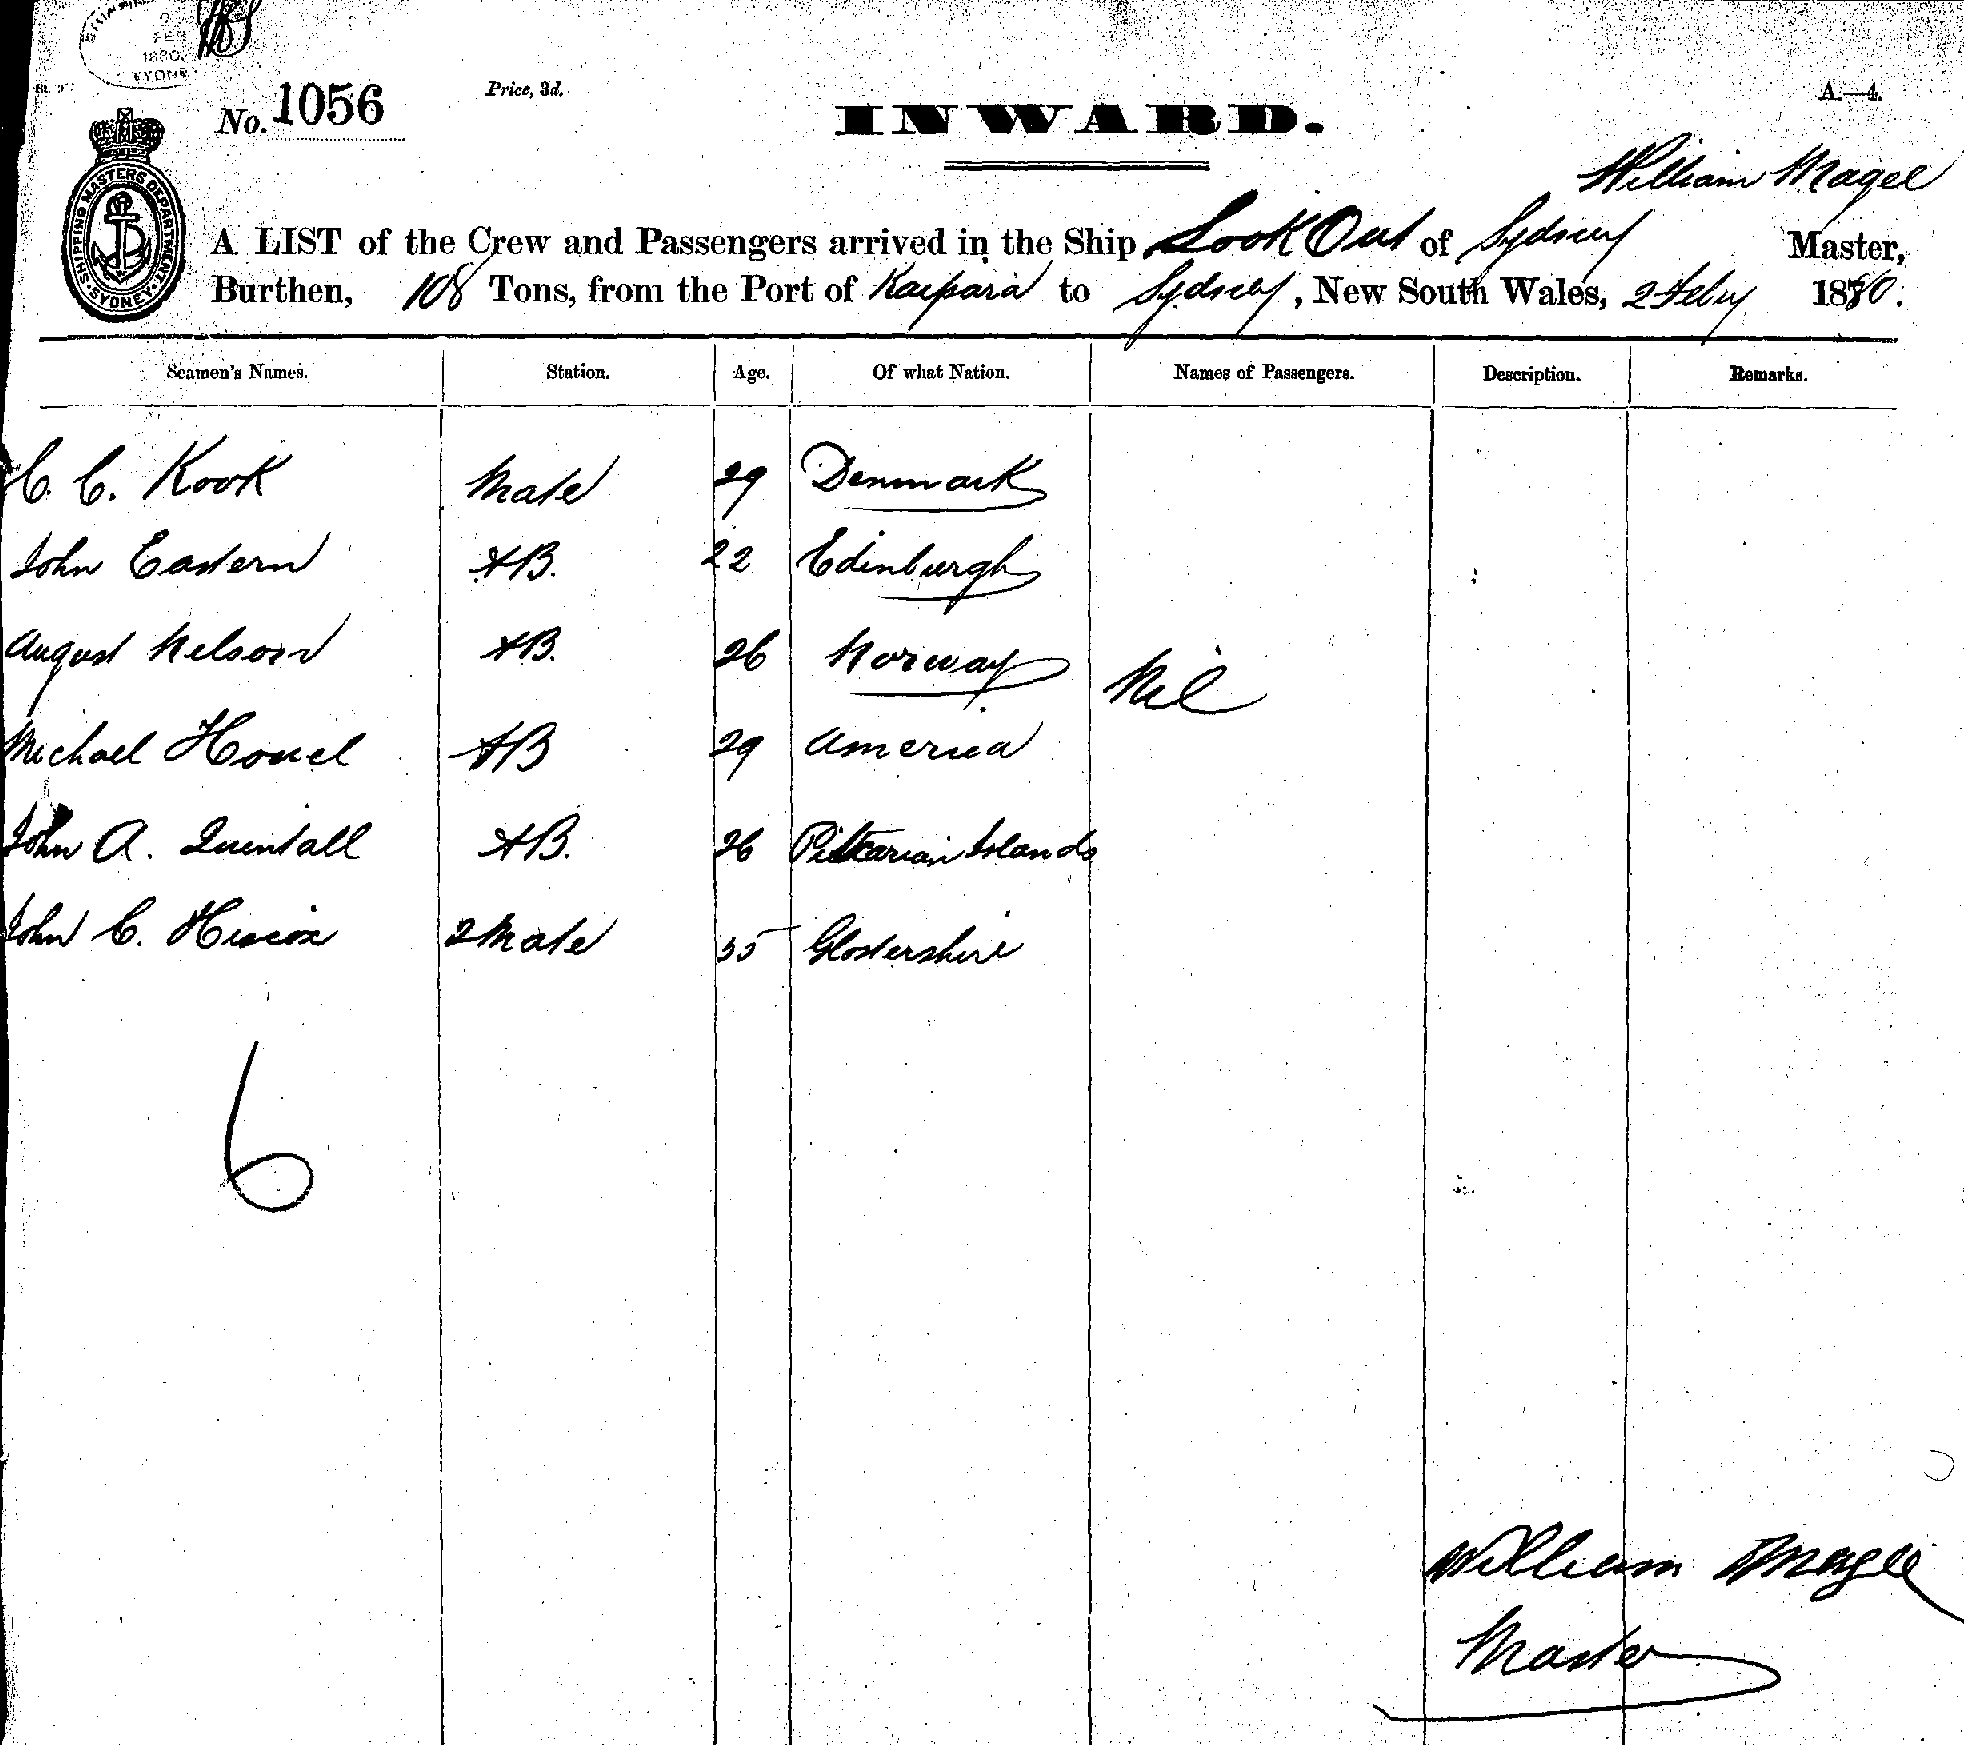 1880
SYDNEY
No. 1056
Price, 3d.
INWARD.
A.—4.
SHIPPING MASTERS DEPARTMENT
SYDNEY
William Magee
A LIST of the Crew and Passengers arrived in the Ship Look Out of Sydney Master,
Burthen, 108 Tons, from the Port of Kaipara to Sydney, New South Wales, 2 Feby 1880.
Seamen's Names. Station. Age. Of what Nation. Names of Passengers. Description. Remarks.
C. C. Kook Mate 29 Denmark
John Eastern AB. 22 Edinburgh
August Nelson AB. 26 Norway
Nil
Michael AB 29 America
John A. Quintall AB. 26 Pitcarian Islands
John C. 2 Mate 35 Glostershire
6
William Magee
Master